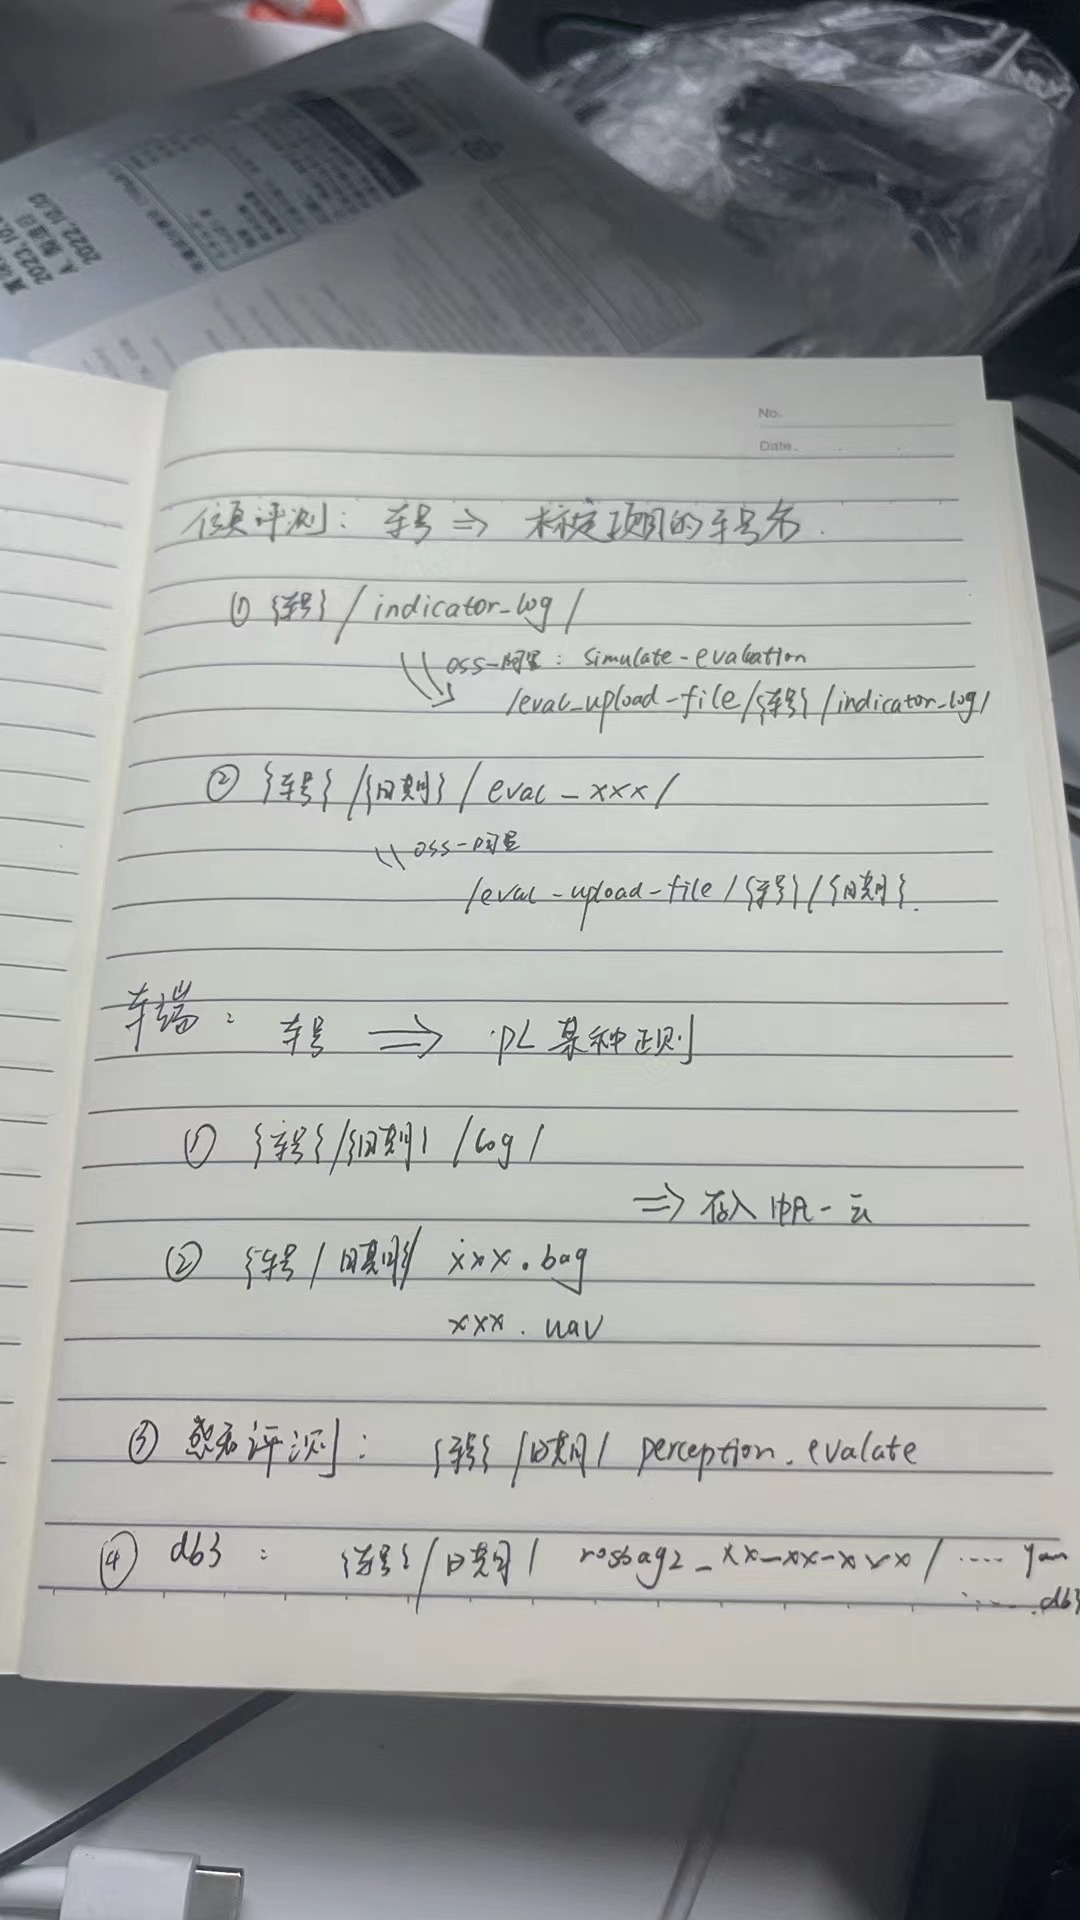 2023.10.
A
2022.10.03
No.
Date.
评测: 车号 ⇒ 标定项目的车号名.
① {车号} / indicator_log /
oss-阿里: simulate-evaluation
/eval_upload-file/{车号}/indicator_log/
② {车号} /{日期} / eval - xxx /
oss-阿里
/eval-upload-file/{车号}/{日期}.
车端: 车号 ⇒ PL 某种正则
① {车号}/{日期} /log/
⇒ 存入 一云
② {车号 / 日期}/ xxx.bag
xxx.
③ 感知评测: {车号} /日期/ perception.evalate
④ db3: {车号}/日期/ rosbag2_xx-xx-xxx/ ....
......db3